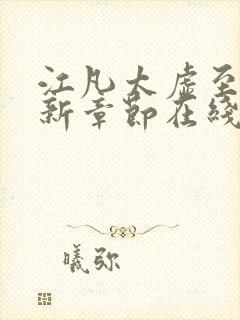 江凡太虚至
新章节在线
曦弥